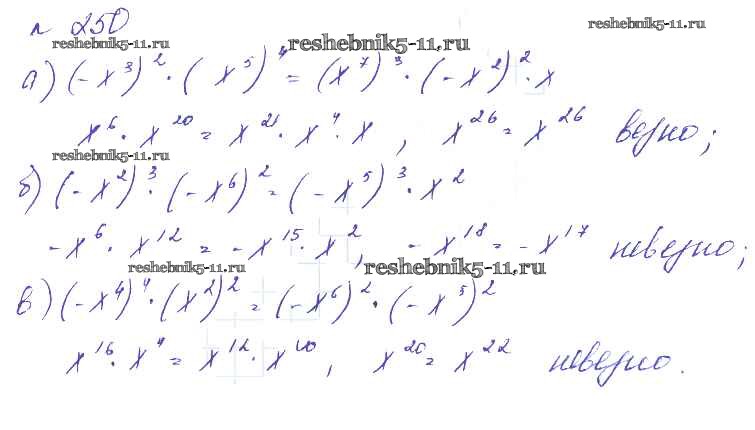 № 250
reshebnik5-11.ru
reshebnik5-11.ru
reshebnik5-11.ru
а) (-x³)² · (x⁵)⁴ = (x⁷)³ · (-x²)² · x
x⁶ · x²⁰ = x²¹ · x⁴ · x, x²⁶ = x²⁶ верно;
reshebnik5-11.ru
б) (-x²)³ · (-x⁶)² = (-x⁵)³ · x²
-x⁶ · x¹² = -x¹⁵ · x², -x¹⁸ = -x¹⁷ неверно;
reshebnik5-11.ru
reshebnik5-11.ru
в) (-x⁴)⁴ · (x²)² = (-x⁶)² · (-x⁵)²
x¹⁶ · x⁴ = x¹² · x¹⁰, x²⁰ = x²² неверно.